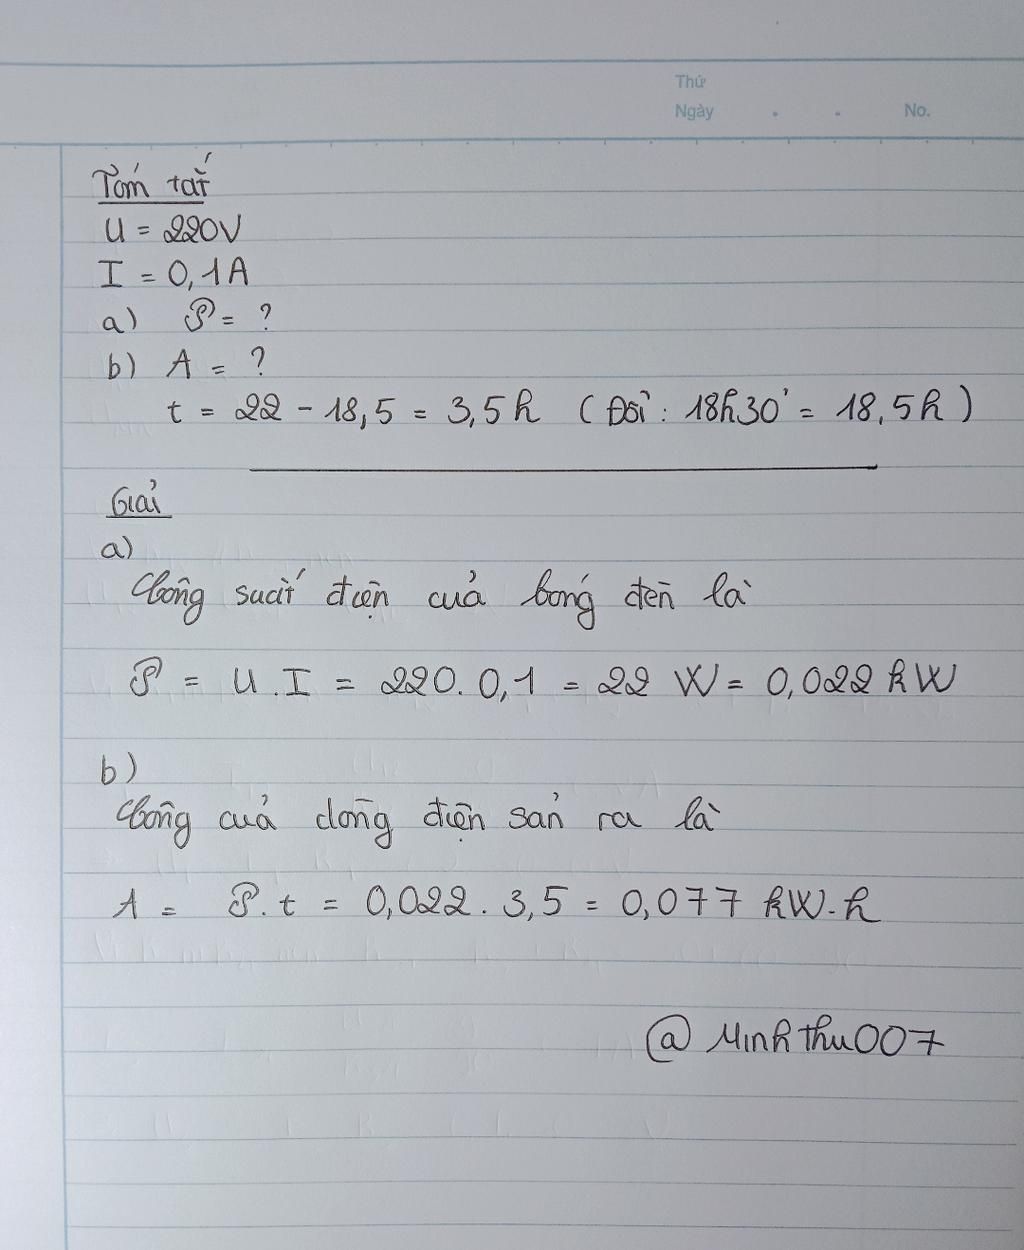 Thứ
Ngày . . No.
Tóm tắt
U = 220V
I = 0,1A
a) P = ?
b) A = ?
t = 22 - 18,5 = 3,5h (Đổi: 18h30' = 18,5h)
Giải
a)
Công suất điện của bóng đèn là
P = U.I = 220.0,1 = 22 W = 0,022 kW
b)
Công của dòng điện sản ra là
A = P.t = 0,022.3,5 = 0,077 kW.h
@Minhthu007